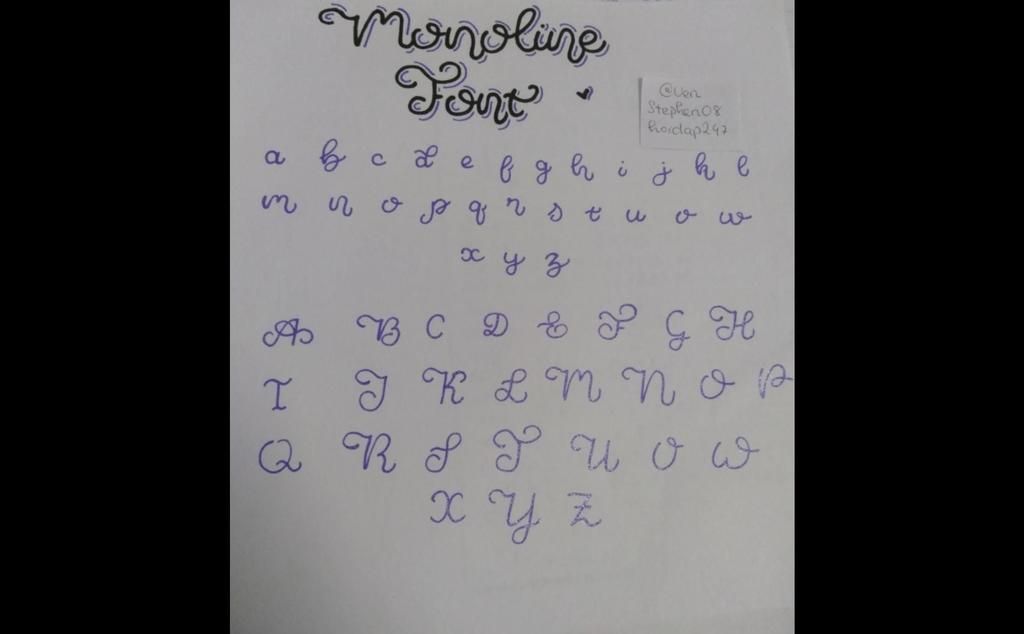 Monoline
Font
@Ven
Stephen08
a b c d e f g h i j k l
m n o p q r s t u v w
x y z
A B C D E F G H
I J K L M N O P
Q R S T U V W
X Y Z